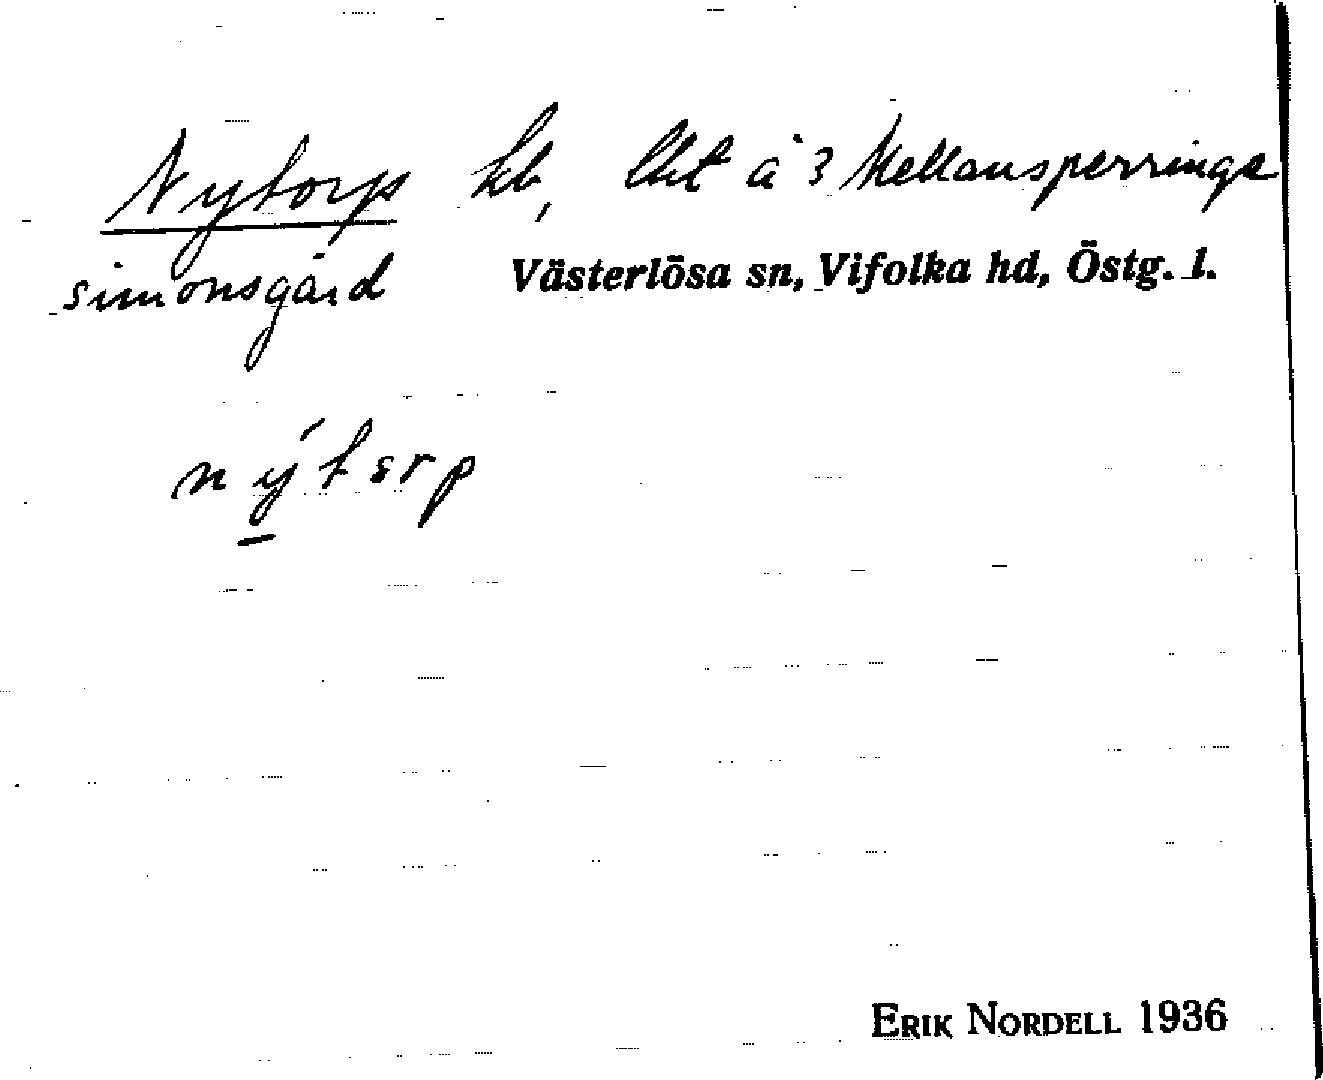 Nytorp lht, lht å 3 Mellansperringe
simonsgård
Västerlösa sn, Vifolka hd, Östg. l.
nýtsrp
ERIK NORDELL 1936